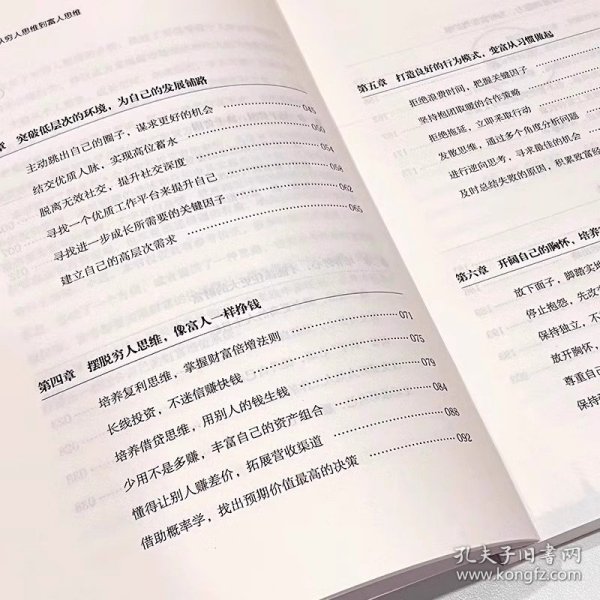 从穷人思维到富人思维
章 突破低层次的环境，为自己的发展铺路
主动跳出自己的圈子，谋求更好的机会 045
结交优质人脉，实现高位蓄水 050
脱离无效社交，提升社交深度 054
寻找一个优质工作平台来提升自己 058
寻找进一步成长所需要的关键因子 062
建立自己的高层次需求 065
第四章 摆脱穷人思维，像富人一样挣钱
培养复利思维，掌握财富倍增法则 071
长线投资，不迷信赚快钱 075
培养借贷思维，用别人的钱生钱 079
少用不是多赚，丰富自己的资产组合 084
懂得让别人赚差价，拓展营收渠道 088
借助概率学，找出预期价值最高的决策 092
第五章 打造良好的行为模式，变富从习惯做起
拒绝浪费时间，把握关键因子
坚持抱团取暖的合作策略
拒绝拖延，立即采取行动
发散思维，通过多个角度分析问题
进行逆向思考，寻求最佳的机会
及时总结失败的原因，积累致富经
第六章 开阔自己的胸怀，培养
放下面子，脚踏实地
停止抱怨，先改
保持独立，不
放开胸怀，
尊重自己
保持
孔夫子旧书网
www.kongfz.com